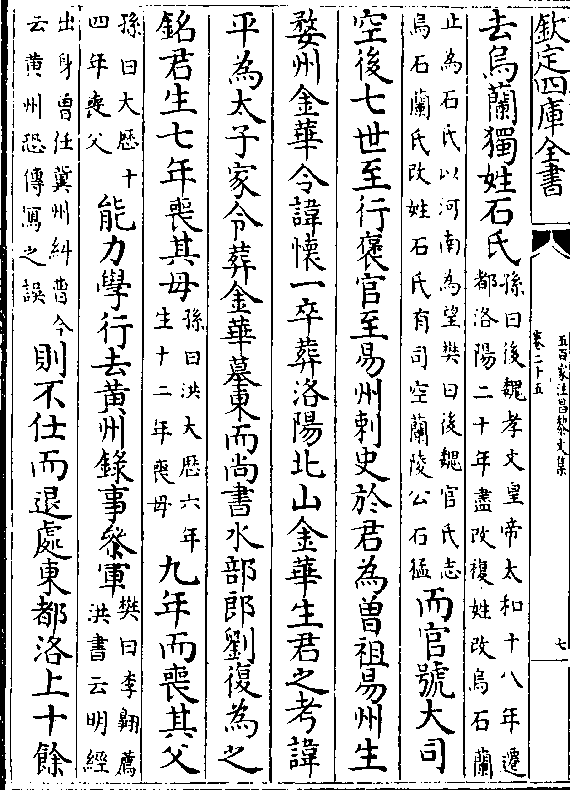 欽定四庫全書
五百家注昌黎文集
卷二十五
七
去烏蘭獨姓石氏
孫曰後魏孝文皇帝太和十八年遷
都洛陽二十年盡改複姓改烏石蘭
止為石氏以河南為望樊曰後魏官氏志
烏石蘭氏改姓石氏有司空蘭陵公石猛
而官號大司
空後七世至行褒官至易州刺史於君為曽祖易州生
婺州金華令諱懷一卒葬洛陽北山金華生君之考諱
平為太子家令葬金華墓東而尚書水部郎劉復為之
銘君生七年喪其母
孫曰洪大歴六年
生十二年喪母
九年而喪其父
孫曰大歴十
四年喪父
能力學行去黄州錄事參軍
樊曰李翺薦
洪書云明經
出身曽任冀州糾曹今
云黄州恐傳寫之誤
則不仕而退處東都洛上十餘